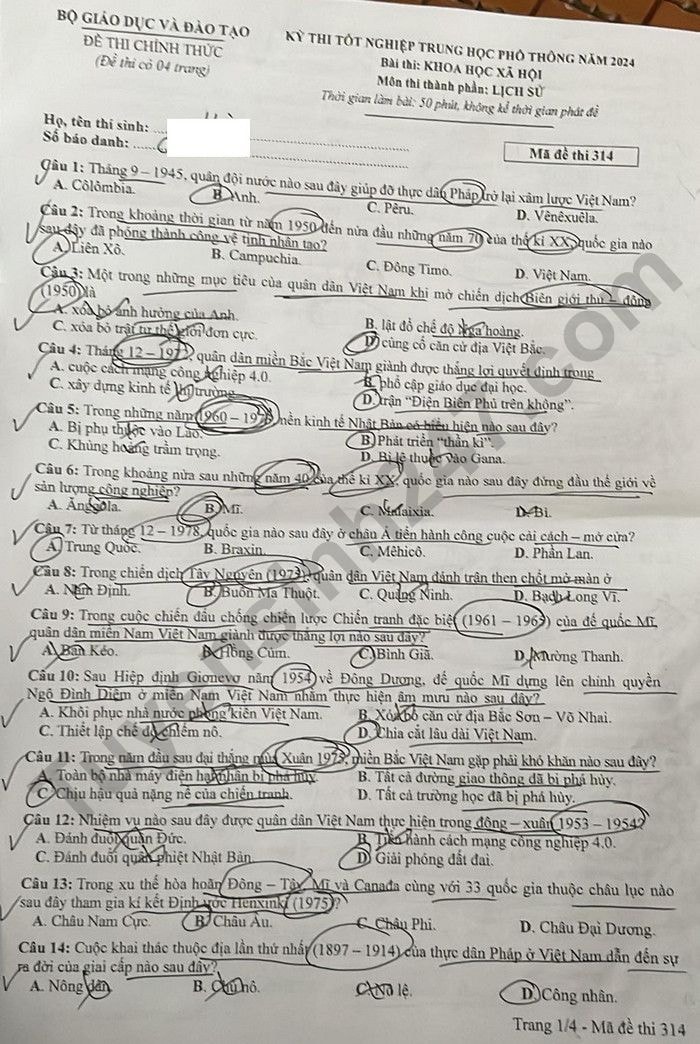 BỘ GIÁO DỤC VÀ ĐÀO TẠO
ĐỀ THI CHÍNH THỨC
(Đề thi có 04 trang)
KỲ THI TỐT NGHIỆP TRUNG HỌC PHỔ THÔNG NĂM 2024
Bài thi: KHOA HỌC XÃ HỘI
Môn thi thành phần: LỊCH SỬ
Thời gian làm bài: 50 phút, không kể thời gian phát đề
Họ, tên thí sinh:
Số báo danh:
Mã đề thi 314
Câu 1: Tháng 9 – 1945, quân đội nước nào sau đây giúp đỡ thực dân Pháp trở lại xâm lược Việt Nam?
A. Côlômbia. B. Anh. C. Pêru. D. Vênêxuêla.
Câu 2: Trong khoảng thời gian từ năm 1950 đến nửa đầu những năm 70 của thế kỉ XX, quốc gia nào
sau đây đã phóng thành công vệ tinh nhân tạo?
A. Liên Xô. B. Campuchia. C. Đông Timo. D. Việt Nam.
Câu 3: Một trong những mục tiêu của quân dân Việt Nam khi mở chiến dịch Biên giới thu – đông
(1950) là
A. xóa bỏ ảnh hưởng của Anh. B. lật đổ chế độ Nga hoàng.
C. xóa bỏ trật tự thế giới đơn cực. D. củng cố căn cứ địa Việt Bắc.
Câu 4: Tháng 12 – 1972, quân dân miền Bắc Việt Nam giành được thắng lợi quyết định trong
A. cuộc cách mạng công nghiệp 4.0. B. phổ cập giáo dục đại học.
C. xây dựng kinh tế thị trường. D. trận “Điện Biên Phủ trên không”.
Câu 5: Trong những năm 1960 – 1973, nền kinh tế Nhật Bản có biểu hiện nào sau đây?
A. Bị phụ thuộc vào Lào. B. Phát triển “thần kì”.
C. Khủng hoảng trầm trọng. D. Bị lệ thuộc vào Gana.
Câu 6: Trong khoảng nửa sau những năm 40 của thế kỉ XX, quốc gia nào sau đây đứng đầu thế giới về
sản lượng công nghiệp?
A. Ănggôla. B. Mĩ. C. Malaixia. D. Bỉ.
Câu 7: Từ tháng 12 – 1978, quốc gia nào sau đây ở châu Á tiến hành công cuộc cải cách – mở cửa?
A. Trung Quốc. B. Braxin. C. Mêhicô. D. Phần Lan.
Câu 8: Trong chiến dịch Tây Nguyên (1975), quân dân Việt Nam đánh trận then chốt mở màn ở
A. Nam Định. B. Buôn Ma Thuột. C. Quảng Ninh. D. Bạch Long Vĩ.
Câu 9: Trong cuộc chiến đấu chống chiến lược Chiến tranh đặc biệt (1961 – 1965) của đế quốc Mĩ,
quân dân miền Nam Việt Nam giành được thắng lợi nào sau đây?
A. Bản Kéo. B. Hồng Cúm. C. Bình Giã. D. Mường Thanh.
Câu 10: Sau Hiệp định Giơnevơ năm 1954 về Đông Dương, đế quốc Mĩ dựng lên chính quyền
Ngô Đình Diệm ở miền Nam Việt Nam nhằm thực hiện âm mưu nào sau đây?
A. Khôi phục nhà nước phong kiến Việt Nam. B. Xóa bỏ căn cứ địa Bắc Sơn – Võ Nhai.
C. Thiết lập chế độ chiếm nô. D. Chia cắt lâu dài Việt Nam.
Câu 11: Trong năm đầu sau đại thắng mùa Xuân 1975, miền Bắc Việt Nam gặp phải khó khăn nào sau đây?
A. Toàn bộ nhà máy điện hạt nhân bị phá hủy. B. Tất cả đường giao thông đã bị phá hủy.
C. Chịu hậu quả nặng nề của chiến tranh. D. Tất cả trường học đã bị phá hủy.
Câu 12: Nhiệm vụ nào sau đây được quân dân Việt Nam thực hiện trong đông – xuân 1953 – 1954?
A. Đánh đuổi quân Đức. B. Tiến hành cách mạng công nghiệp 4.0.
C. Đánh đuổi quân phiệt Nhật Bản. D. Giải phóng đất đai.
Câu 13: Trong xu thế hòa hoãn Đông – Tây, Mĩ và Canada cùng với 33 quốc gia thuộc châu lục nào
sau đây tham gia kí kết Định ước Henxinki (1975)?
A. Châu Nam Cực. B. Châu Âu. C. Châu Phi. D. Châu Đại Dương.
Câu 14: Cuộc khai thác thuộc địa lần thứ nhất (1897 – 1914) của thực dân Pháp ở Việt Nam dẫn đến sự
ra đời của giai cấp nào sau đây?
A. Nông dân. B. Chủ nô. C. Nô lệ. D. Công nhân.
Trang 1/4 - Mã đề thi 314